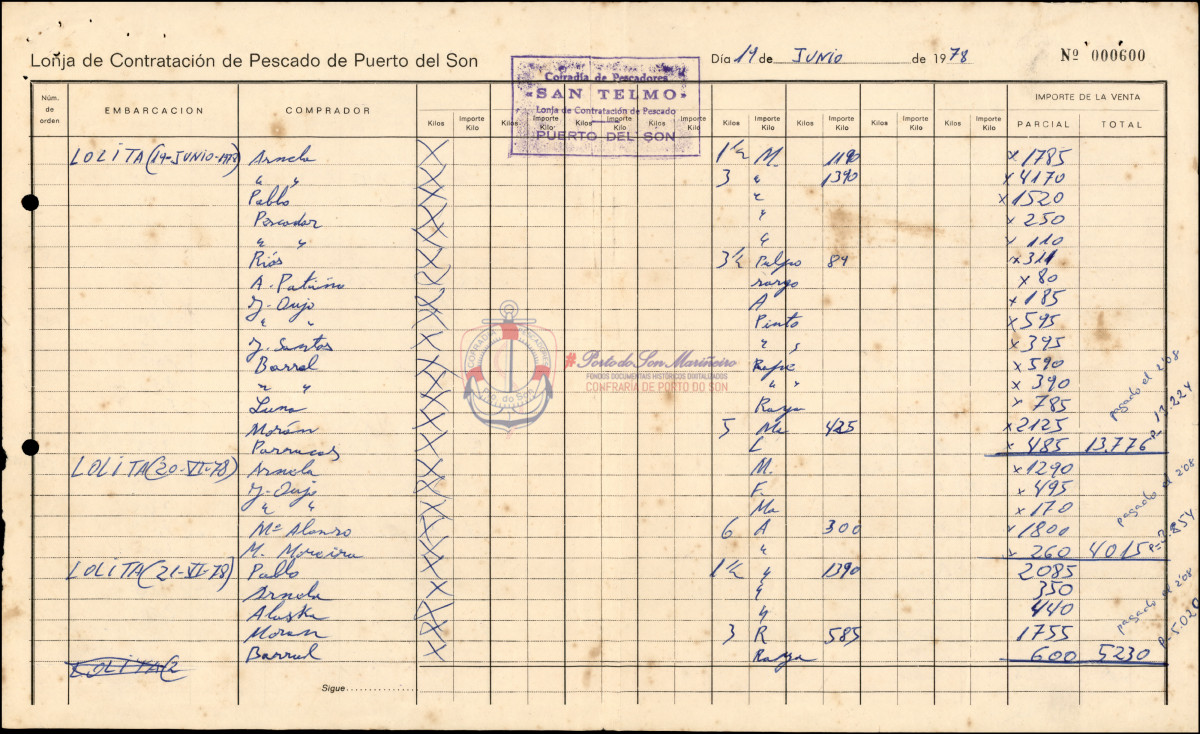 Lonja de Contratación de Pescado de Puerto del Son
Día 19 de JUNIO de 1978
Nº 000600
Cofradía de Pescadores
"SAN TELMO"
Lonja de Contratación de Pescado
PUERTO DEL SON
Núm. de orden EMBARCACION COMPRADOR Kilos Importe Kilo Kilos Importe Kilo Kilos Importe Kilo Kilos Importe Kilo Kilos Importe Kilo Kilos Importe Kilo IMPORTE DE LA VENTA PARCIAL TOTAL
LOLITA (19-JUNIO-1978) Arnela 1 ½ M. 1190 x 1785
" " 3 " 1390 x 4170
Pablo " x 1520
Pescador " x 250
" " " x 110
Riós 3 ½ Pulpo 89 x 311
A. Patiño sargo x 80
J. Oujo A x 185
" " Pinto x 595
J. Santos " " x 395
Barral Raya x 590
" " " " x 390
Luna Raya x 785
Morán 5 Ma 425 x 2125
Parrucas L x 485 13.776
pagado el 2'08 P= 13.224
LOLITA (20-VI-78) Arnela M. x 1290
J. Oujo F. x 495
" " Ma x 170
Mª Alonso 6 A 300 x 1800
M. Moreira " x 260 4015
pagado el 2'08 P= 3.854
LOLITA (21-VI-78) Pablo 1 ½ " 1390 2085
Arnela " 350
Alaska " 440
Moran 3 R 585 1755
Barral Raya 600 5230
pagado el 2'08 P= 5.020
LOLITA (2
Sigue
COFRADÍA PESCADORES
Pto. do Son
#PortodoSonMariñeiro
FONDOS DOCUMENTAIS HISTÓRICOS DIXITALIZADOS
CONFRARÍA DE PORTO DO SON